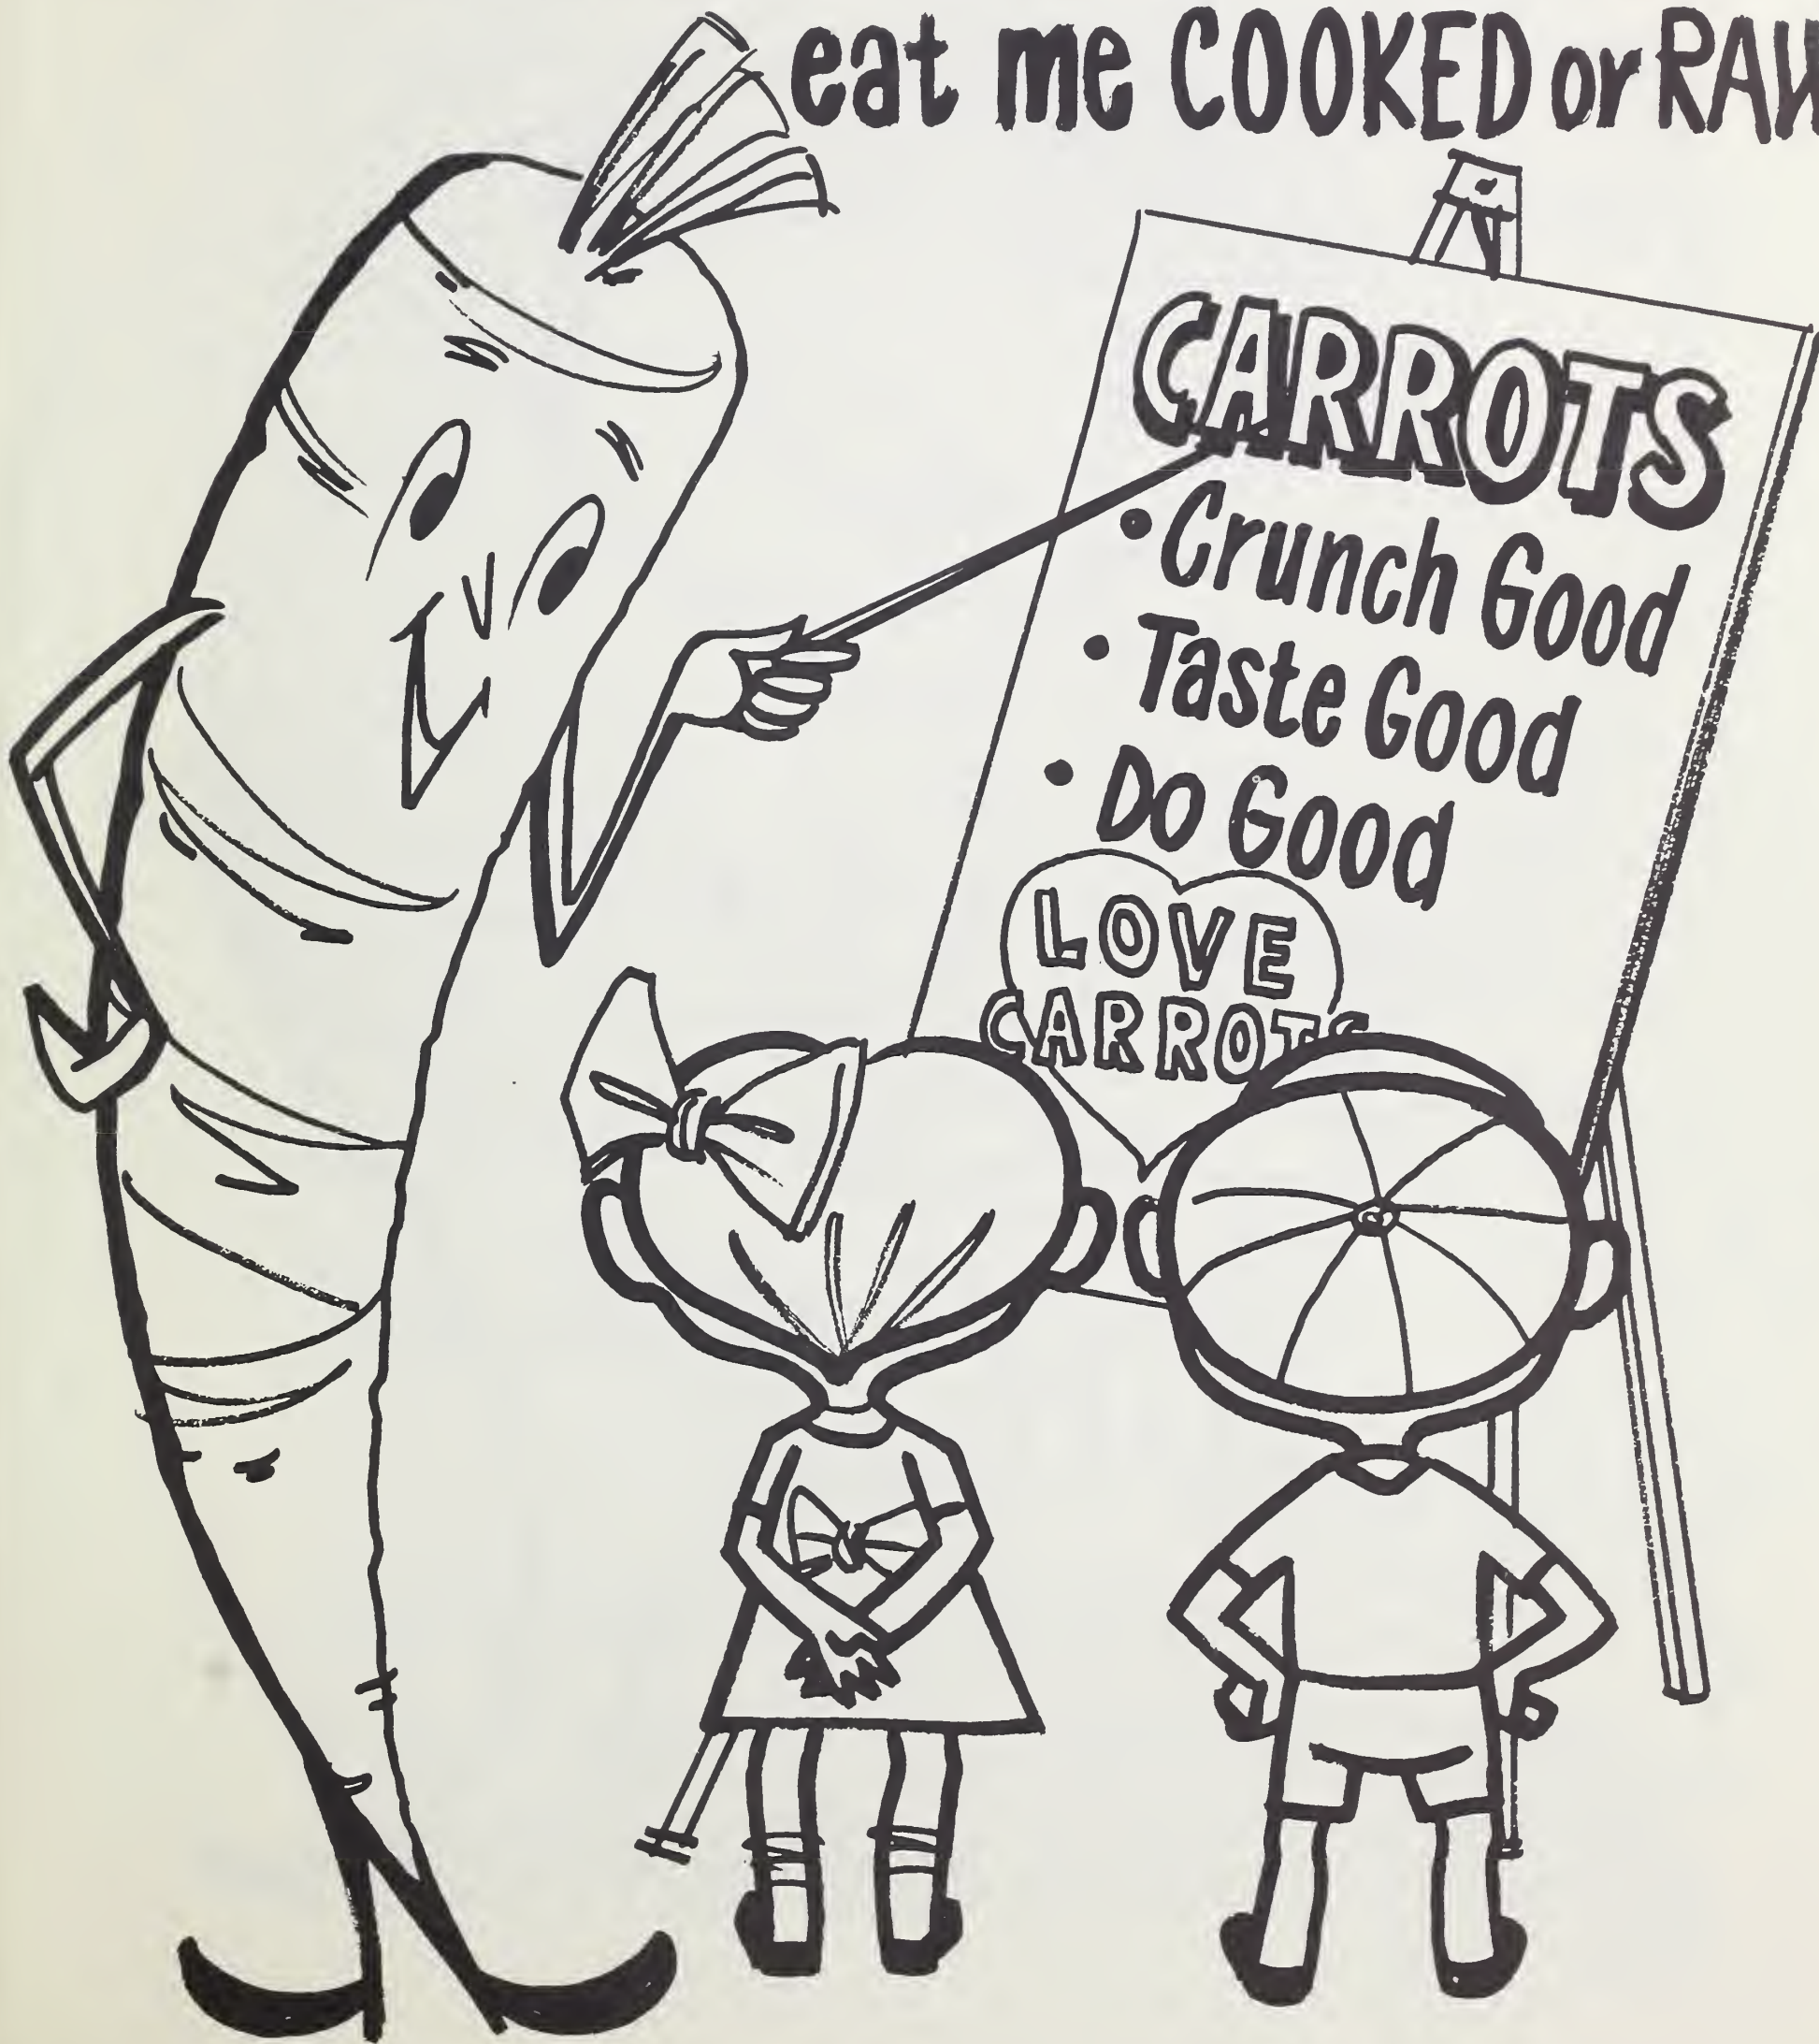 eat me COOKED or RAW
CARROTS
• Crunch Good
• Taste Good
• Do Good
LOVE
CARROTS